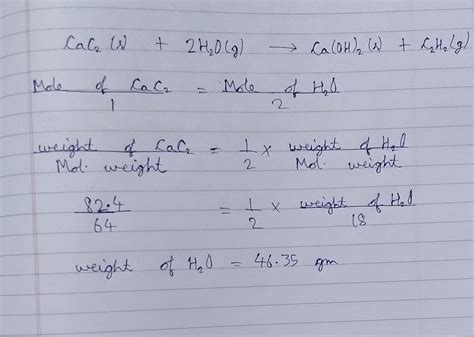 CaC₂ (s) + 2H₂O(g) → Ca(OH)₂(s) + C₂H₂(g)
Mole of CaC₂ / 1 = Mole of H₂O / 2
weight of CaC₂ / Mol. weight = 1/2 × weight of H₂O / Mol. weight
82.4 / 64 = 1/2 × weight of H₂O / 18
weight of H₂O = 46.35 gm